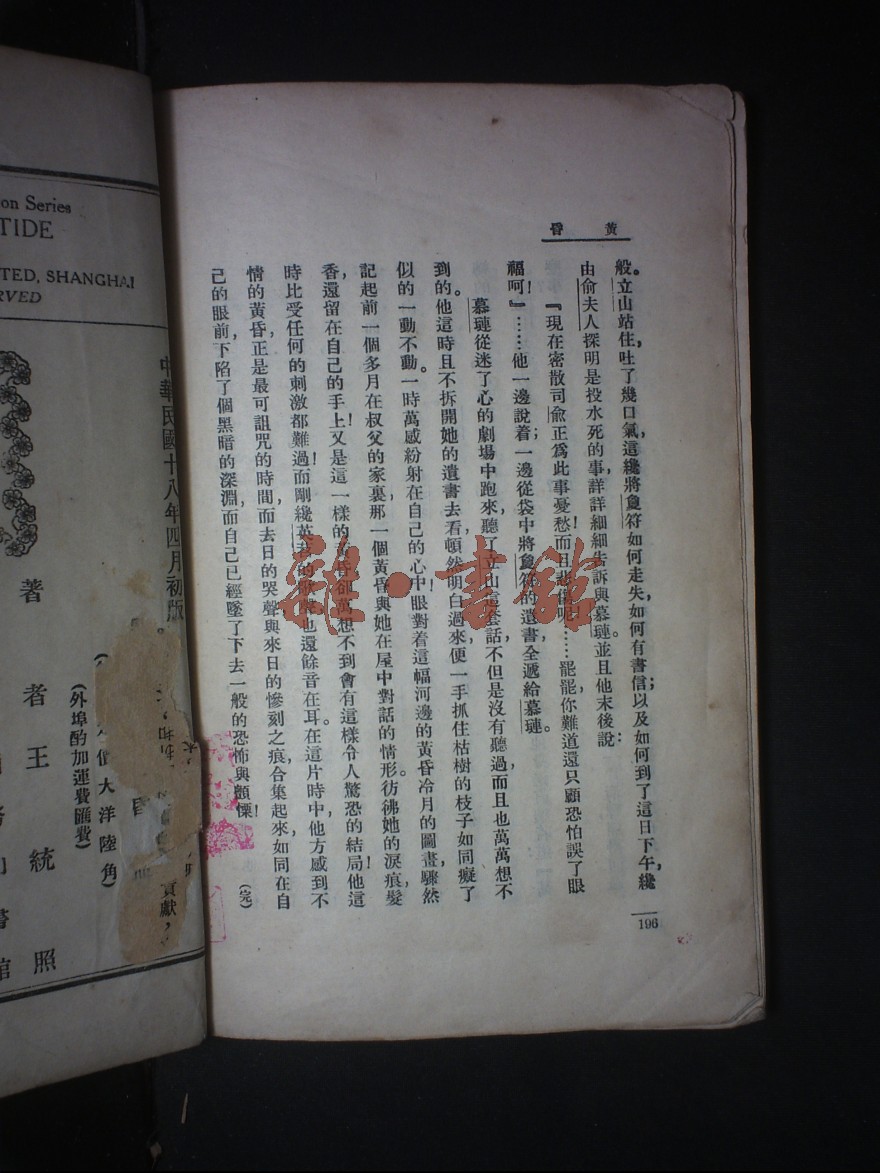 黃昏
般。立山站住，吐了幾口氣，這纔將夐符如何走失，如何有書信；以及如何到了這日下午，纔
由俞夫人探明是投水死的事，詳詳細細告訴與慕璉。並且他末後說：
『現在密散司俞正爲此事憂愁！而且悲傷呢……罷罷，你難道還只顧恐怕誤了眼
福呵！』……他一邊說着；一邊從袋中將夐符的遺書全遞給慕璉。
慕璉從迷了心的劇場中跑來，聽了立山這套話，不但是沒有聽過，而且也萬萬想不
到的。他這時且不拆開她的遺書去看，頓然明白過來，便一手抓住枯樹的枝子，如同癡了
似的一動不動。一時萬感紛射在自己的心中！眼對着這幅河邊的黃昏冷月的圖畫，驟然
記起前一個多月在叔父的家裏，那一個黃昏與她在屋中對話的情形。彷彿她的淚痕髮
香，還留在自己的手上！又是這一樣的黃昏，卻萬想不到會有這樣令人驚恐的結局！他這
時比受任何的刺激都難過！而剛纔英苕的歌聲，也還餘音在耳。在這片時中，他方感到不
情的黃昏，正是最可詛咒的時間，而去日的哭聲與來日的慘刻之痕，合集起來，如同在自
己的眼前，下陷了個黑暗的深淵，而自己已經墜了下去一般的恐怖與顫慄！
（完）
196
on Series
TIDE
TED, SHANGHAI
RVED
中華民國十八年四月初版
價大洋陸角
（外埠酌加運費匯費）
著者 王統照
館
貢獻，
雜·書館